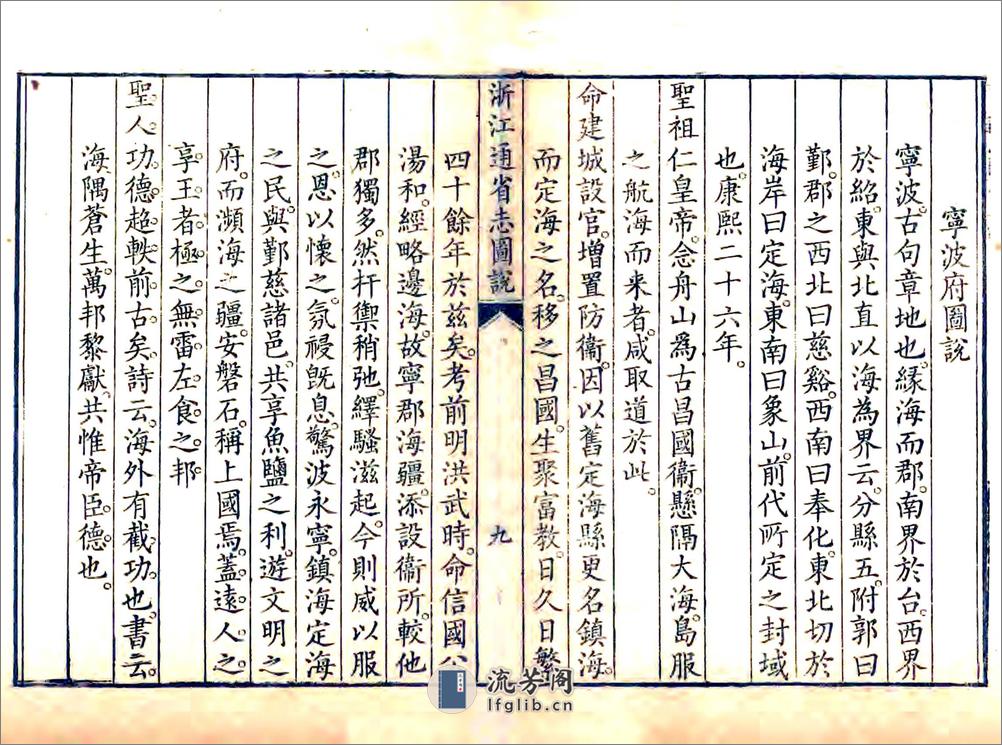 寧波府圖說
寧波古句章地也。緣海而郡。南界於台。西界
於紹。東與北直以海為界云。分縣五。附郭曰
鄞。郡之西北曰慈谿。西南曰奉化。東北切於
海岸曰定海。東南曰象山。前代所定之封域
也。康熙二十六年。
聖祖仁皇帝。念舟山為古昌國衞。懸隔大海。島服
之航海而来者。咸取道於此。
命建城設官。增置防衞。因以舊定海縣更名鎮海。
而定海之名。移之昌國。生聚富教。日久日繁。
浙江通省志圖說
九
四十餘年於兹矣。考前明洪武時。命信國公
湯和。經略邊海。故寧郡海疆。添設衞所。較他
郡獨多。然杆禦稍弛。繹騷滋起。今則威以服
之。恩以懷之。氛祲旣息。驚波永寧。鎮海定海
之民。與鄞慈諸邑。共享魚鹽之利。遊文明之
府。而瀕海之疆。安磐石。稱上國焉。蓋遠人之
享王者。極之無雷左食之邦。
聖人功德。超軼前古矣。詩云。海外有截。功也。書云。
海隅蒼生。萬邦黎獻。共惟帝臣。德也。
流芳阁
lfglib.cn